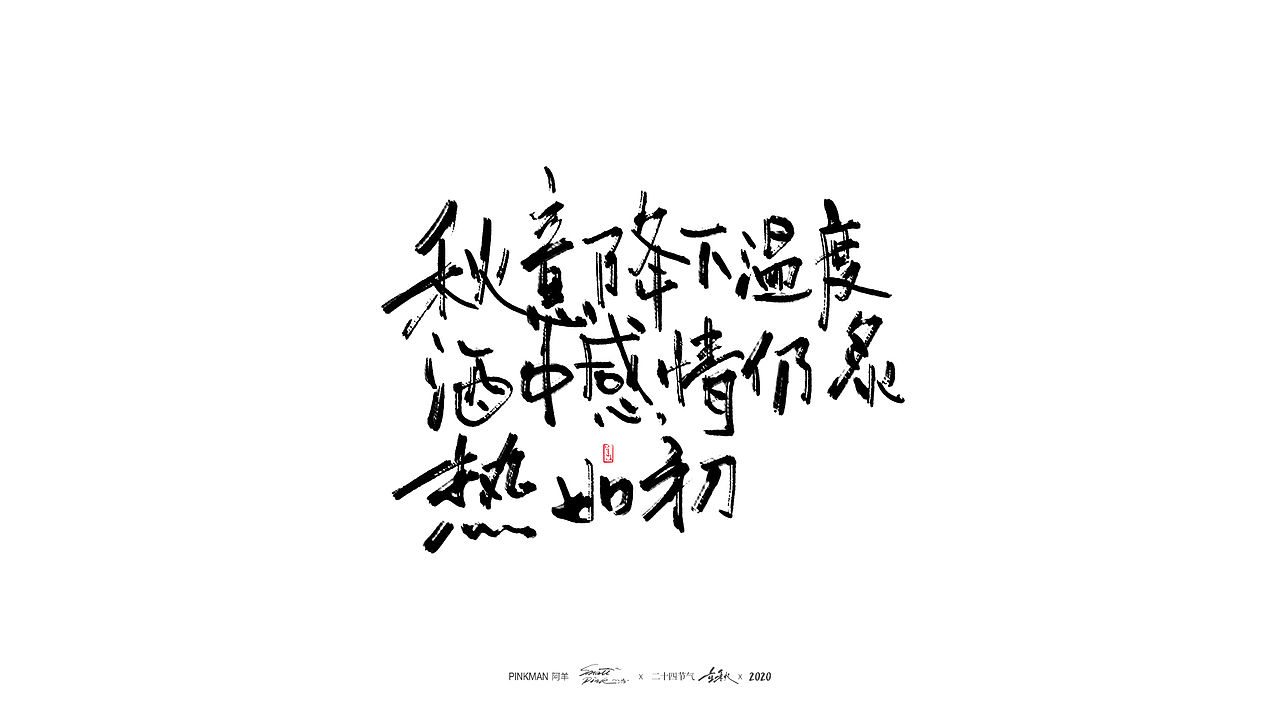 秋意降下温度
酒中感情仍炙
热如初
PINKMAN 阿羊 x 二十四节气 立秋 x 2020